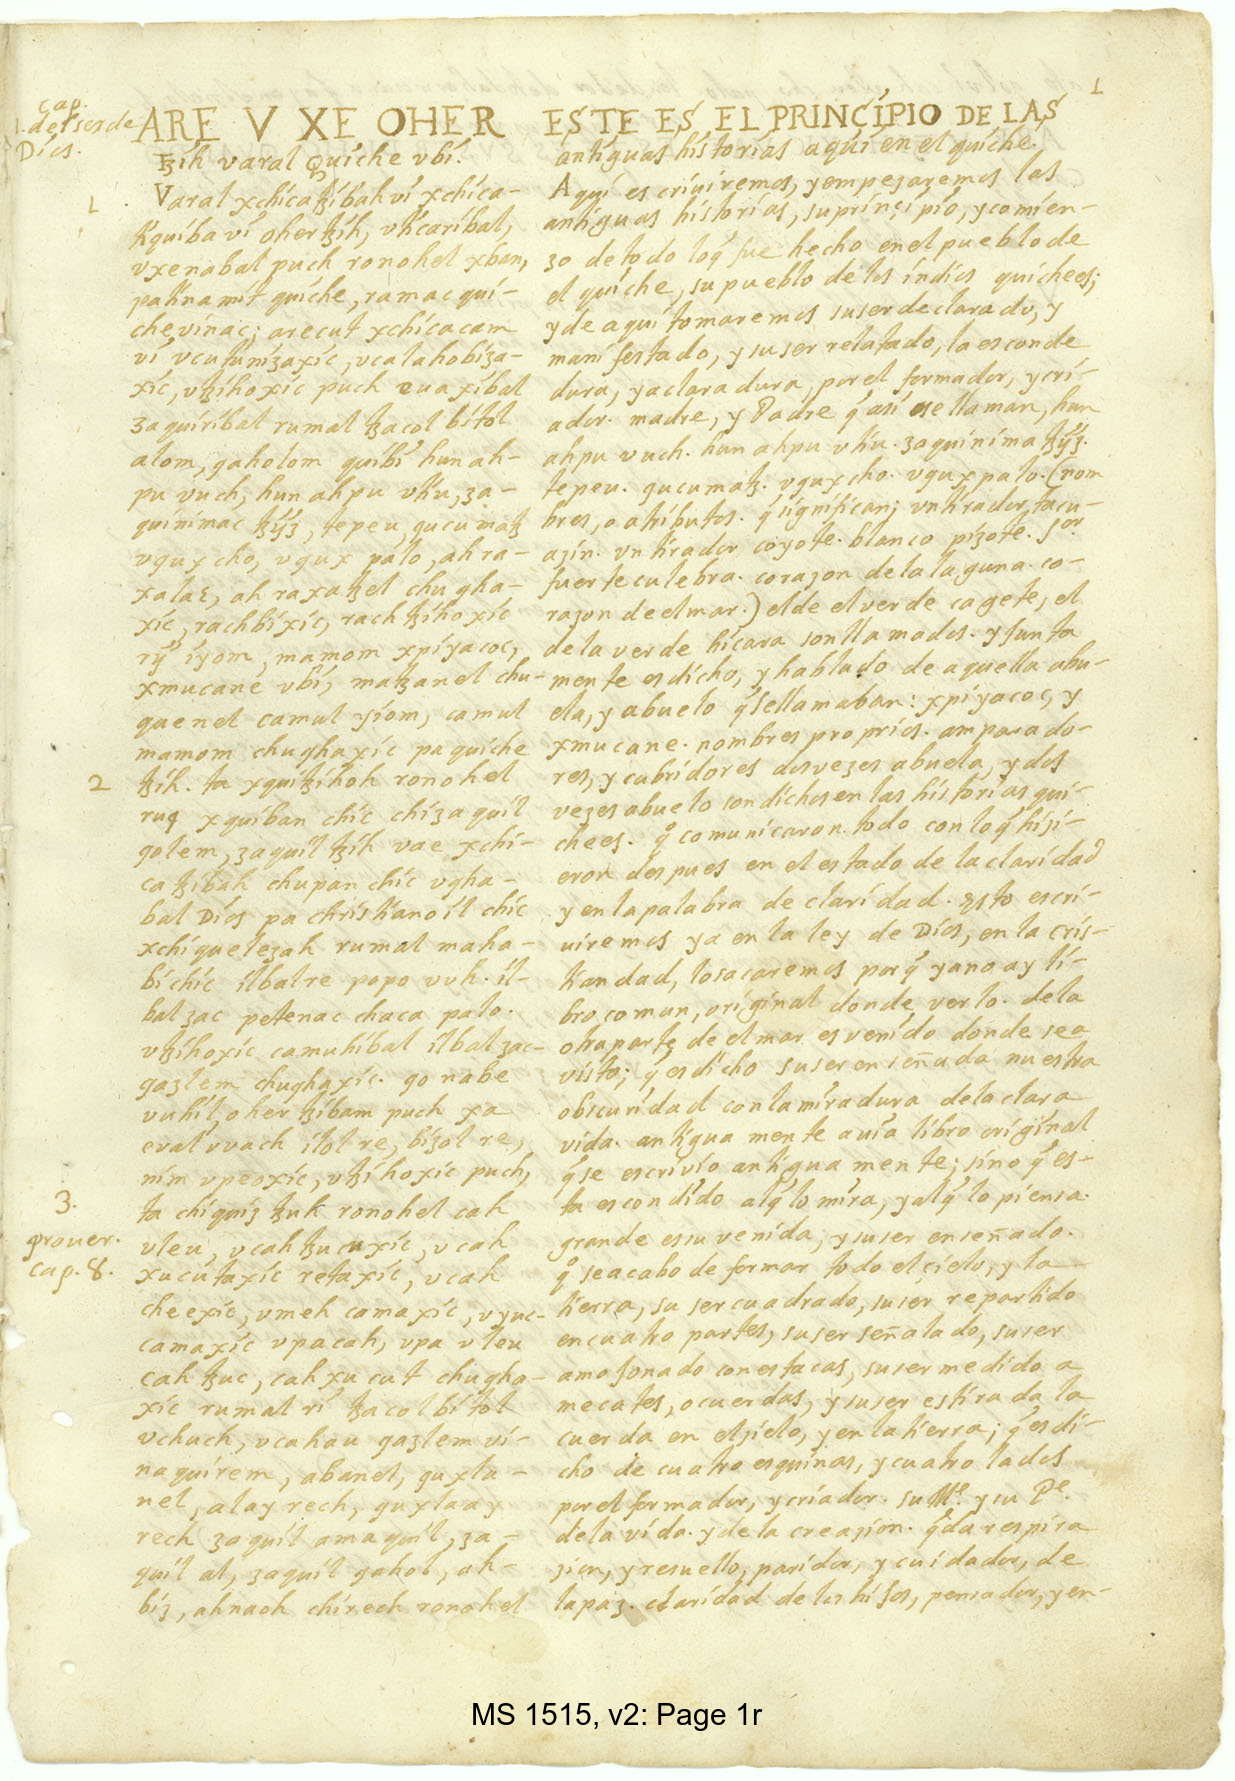 1
cap.
1. del ser de
Dios.
ARE V XE OHER
ꜩih varal Quiche vbi.
1
Varal xchicaꜩibah vi xchica-
tiquiba vi oher ꜩih, vticaribal,
vxenabal puch ronohel xban,
patinamit quiche, ramac qui-
chevinac; arecut xchicacam
vi vcutunizaxic, vcalahobiza-
xic, vꜩihoxic puch euaxibal
zaquiribal rumal ꜩacol bitol
alom, qaholom quibi hun ah-
pu vuch, hun ahpu vtiu, za-
quinimac ꜩÿz, tepeu, qucumaꜩ
vqux cho, vqux palo, ah ra-
xalaɛ, ah raxaꜩel chu qha-
xic, rachbixic, rach ꜩihoxic
rÿ iyom, mamom xpiyacoc,
xmucane vbi, maꜩanel chu-
quenel camul yiom, camul
mamom chuqhaxic paquiche
2
ꜩih. ta xquiꜩihoh ronohel
ruq xquiban chic chizaquil
qolem, zaquil ꜩih vae xchi-
ca ꜩibah chupan chic vqha-
bal Dios pa christianoil chic
xchiquelezah rumal maha-
bi chic ilbalre popo vuh. il-
bal zac petenac chaca palo.
vꜩihoxic camuhibal ilbal zac-
qazlem chuqhaxic. qo nabe
vuhil, oher ꜩibam puch xa
eval vvach ilol re, bizol re,
nim vpeoxic, vꜩihoxic puch,
3.
ta chiquiz ꜩuk ronohel cah
prover.
cap. 8.
vleu, vcah ꜩucuxic, vcah
xucutaxic retaxic, vcah
cheexic, vmeh camaxic, vyuc-
camaxic vpacah, vpa vleu
cah ꜩuc, cah xucut chuqha-
xic rumal ri ꜩacol bitol
vchuch, vcahau qazlem vi-
naquirem, abanel, quxla-
nel, alay rech, quxlaay
rech zaquil amaquil, za-
quil al, zaquil qahol, ah-
biz, ahnaoh chirech ronohel
ESTE ES EL PRINCIPIO DE LAS
antiguas historias aqui en el quiche.
Aqui escriviremos, yempezaremos las
antiguas historias, suprinçipio, ycomien-
zo detodo loq̃ fue hecho enel pueblode
el quiche, supueblo delos indios quichees;
yde aqui tomaremos suserdeclarado, y
manifestado, ysuser relatado, laesconde
dura, yaclaradura, porel formador, ycri-
ador. madre, y Padre q̃ asi sellaman, hun
ahpu vuch. hun ahpu vtiu. zaquinima ꜩÿz.
tepeu. qucumaꜩ. vquxcho. vquxpalo. (nom
bres, o atributos. q̃ significan; vntirador, tacu-
azin. vntirador coyote. blanco pizote. Sor.
fuerteculebra. corazon delalaguna. co-
razon deelmar.) elde elverde cagete, el
delaverde hicara sonllamados. yjunta
mente esdicho, yhablado de aquella abu-
ela, yabuelo q̃sellamaban: xpiyacoc, y
xmucane. nombres proprios. amparado-
res, ycubridores dosvezes abuela, ydos
vezesabuelo sondichosen las historias qui-
chees. q̃ comunicaron. todo con loq̃ hizi-
eron despues en elestado de laclaridad
yenlapalabra de claridad. Esto escri-
viremos ya enla ley de Dios, enla cris-
tiandad, losacaremos porq̃ yano ay li-
brocomun, original donde verlo. dela
otraparte deelmar esvenido donde sea
visto; q̃ esdicho suserenseñada nuestra
obscuridad conlamiradura delaclara
vida. antigua mente avia libro original
q̃se escrivio antiguamente; sino q̃ es-
ta escondido alq̃ lo mira, yalq̃ lo piensa.
grande essu venida, ysuser enseñado.
q̃ seacabo deformar todo elçielo, yla
tierra, su sercuadrado, suser repartido
encuatro partes, suser señalado, suser
amojonado conestacas, susermedido a
mecates, ocuerdas, ysuser estirada la
cuerda en elzielo, yenlatierra; q̃ esdi-
cho de cuatro esquinas, ycuatro lados
porel formador, ycriador. su Me. ysu Pe.
dela vida. ydela creazion. q̃da respira
zion, yresuello, paridor, ycuidador, de
lapaz. claridad delos hijos, pensador, yen-
MS 1515, v2: Page 1r